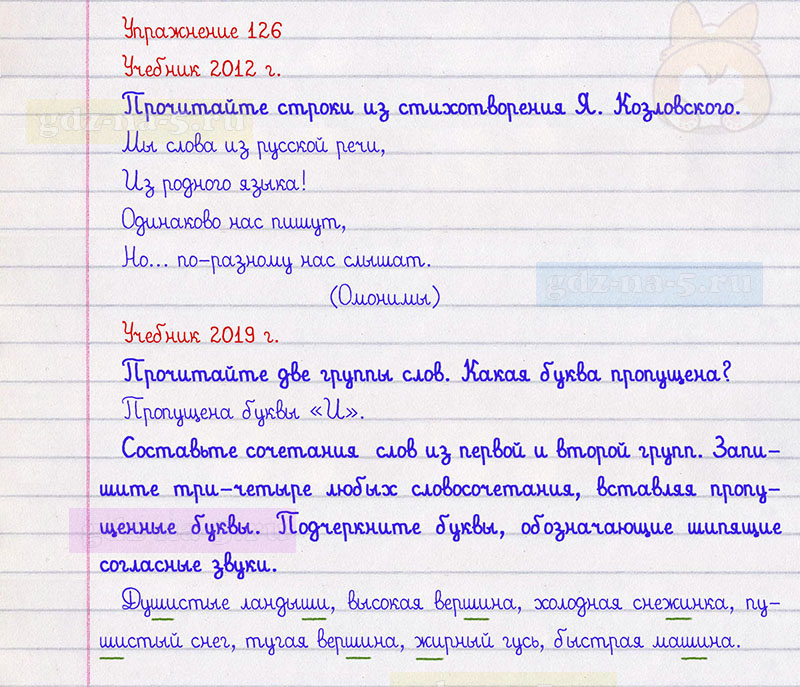 Упражнение 126
Учебник 2012 г.
gdz-na-5.ru
Прочитайте строки из стихотворения Я. Козловского.
Мы слова из русской речи,
Из родного языка!
Одинаково нас пишут,
Но... по-разному нас слышат.
gdz-na-5.ru
(Омонимы)
Учебник 2019 г.
Прочитайте две группы слов. Какая буква пропущена?
Пропущена буквы «И».
Составьте сочетания слов из первой и второй групп. Запи-
шите три-четыре любых словосочетания, вставляя пропу-
щенные буквы. Подчеркните буквы, обозначающие шипящие
согласные звуки.
Душистые ландыши, высокая вершина, холодная снежинка, пу-
шистый снег, тугая вершина, жирный гусь, быстрая машина.